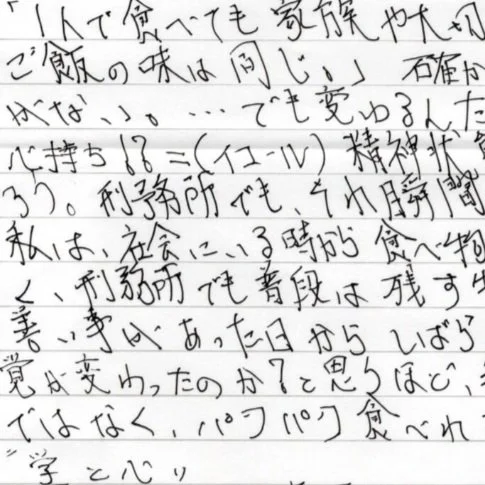 「1人で食べても家族や大切
ご飯の味は同じ。」 確か
がない。…でも変わるんだ
心持ち!?=(イコール)精神状
ろう。刑務所でも、それ瞬間
私は、社会にいる時から食べ物
く、刑務所でも普段は残す
善い事があった日からしばら
覚が変わったのか?と思うほど、
ではなく、パクパク食べれ
"学と心"